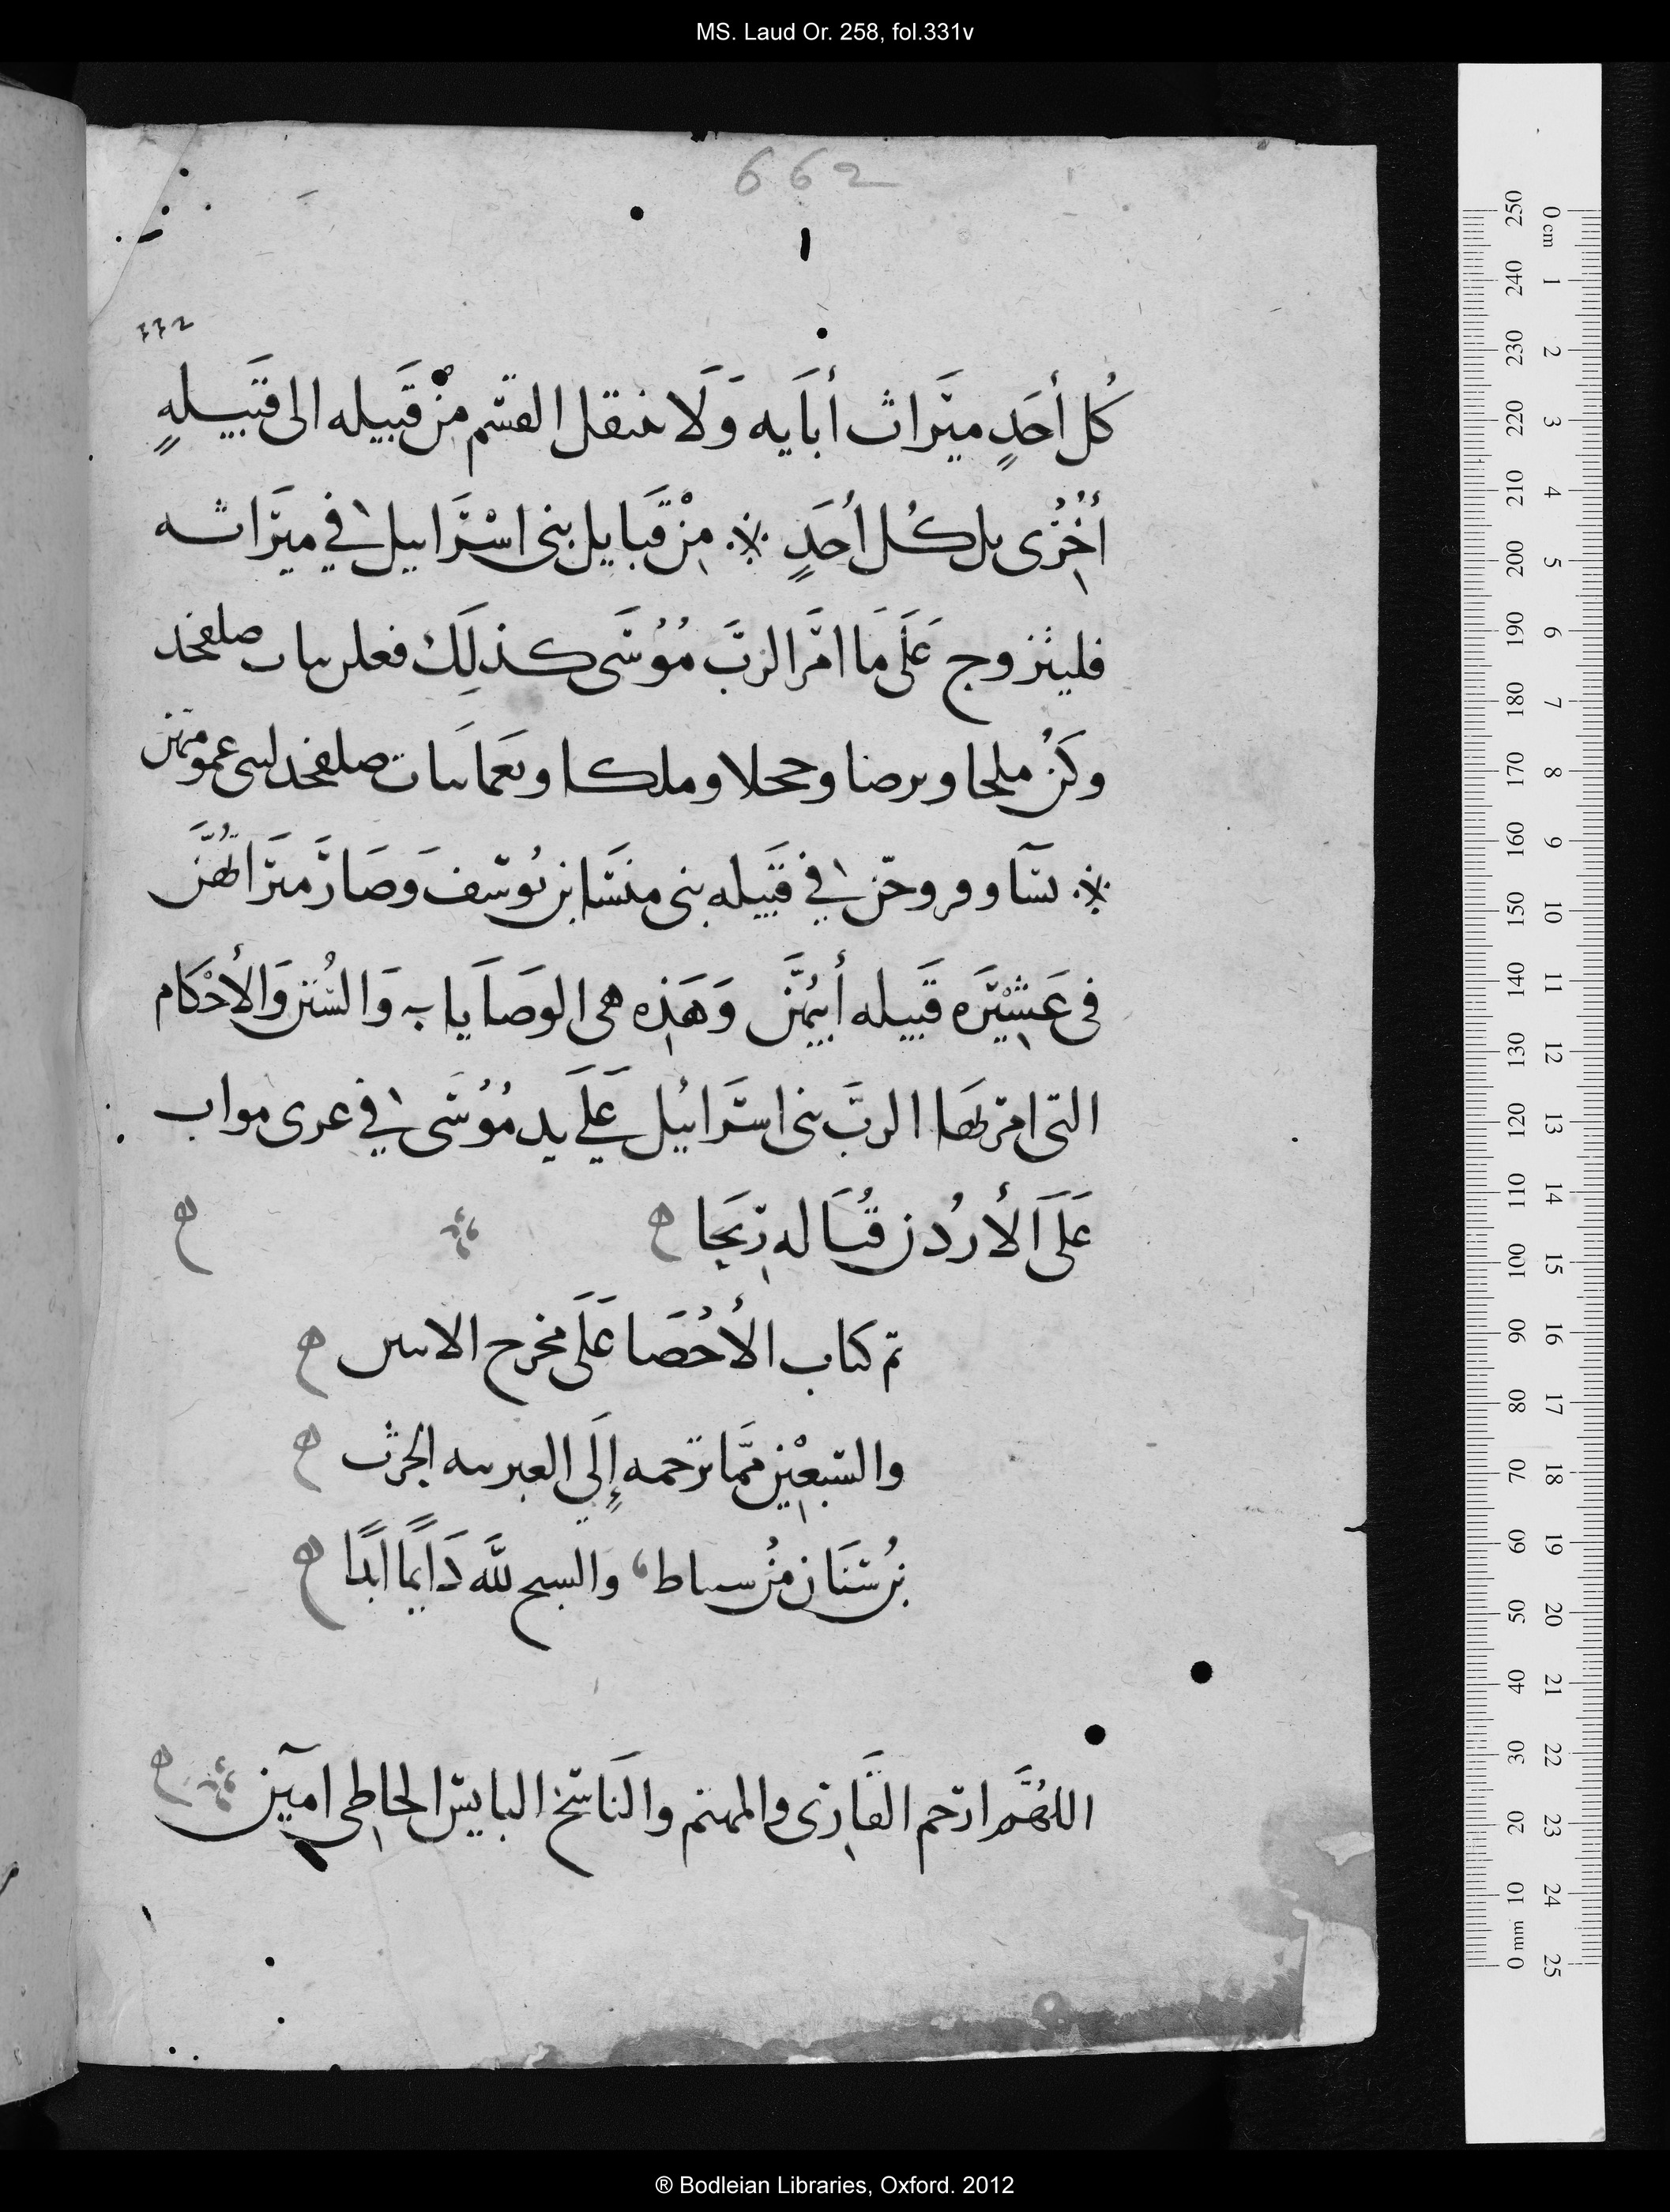 MS. Laud Or. 258, fol.331v
662
كُل أحَدٍ ميَراث أبَايه وَلَا ىنقل القسْم مِنْ قَبيله الى قَبيلهٍ
أُخُرْى بل كُل أحَدٍ ※ مِنْ قبَايل بنى اسْرَاييل في ميَراثه
فليتزوج عَلَى مَا امَر الربَ مُوُسَى كذلِكَ فعلں ٮںاٮ صلفحد
وكَنُ ملحا وىرصا وححلا وملكا وىعَما ٮںات صلفحد لٮٮى عمومتهن
※ نسَآ وىروحْن في قَبيله بنى منسَا بن يُوسف وَصَارَ ميَراتُهُنَ
فى عَشِيْرَه قَبيله أبيُهنَ وَهَذِه هى الوصَايَاٮ وَالسُنن وَالأَحْكَام
التى امر بهَا الربَ بنى اسَرَائيل عَلَى يد مُوُسَى في عرى مواب
عَلَى الأُردُن قُبَاله رِيَحا
تم كتاب الأُحْصَا عَلَى مخرج الاٮٮں
والسبعِيْن مّما ترحمه إِلى العبرٮىه الحرث
بنُ سنَان مِنُ سٮںاط، والسبح لله دَايمًا ابدًا
اللهُمَ ارحم القَارِى والمهتم والنَاسخ البايس الخاطِى امٓين
0 cm 1 2 3 4 5 6 7 8 9 10 11 12 13 14 15 16 17 18 19 20 21 22 23 24 25
250 240 230 220 210 200 190 180 170 160 150 140 130 120 110 100 90 80 70 60 50 40 30 20 10 0 mm
® Bodleian Libraries, Oxford. 2012